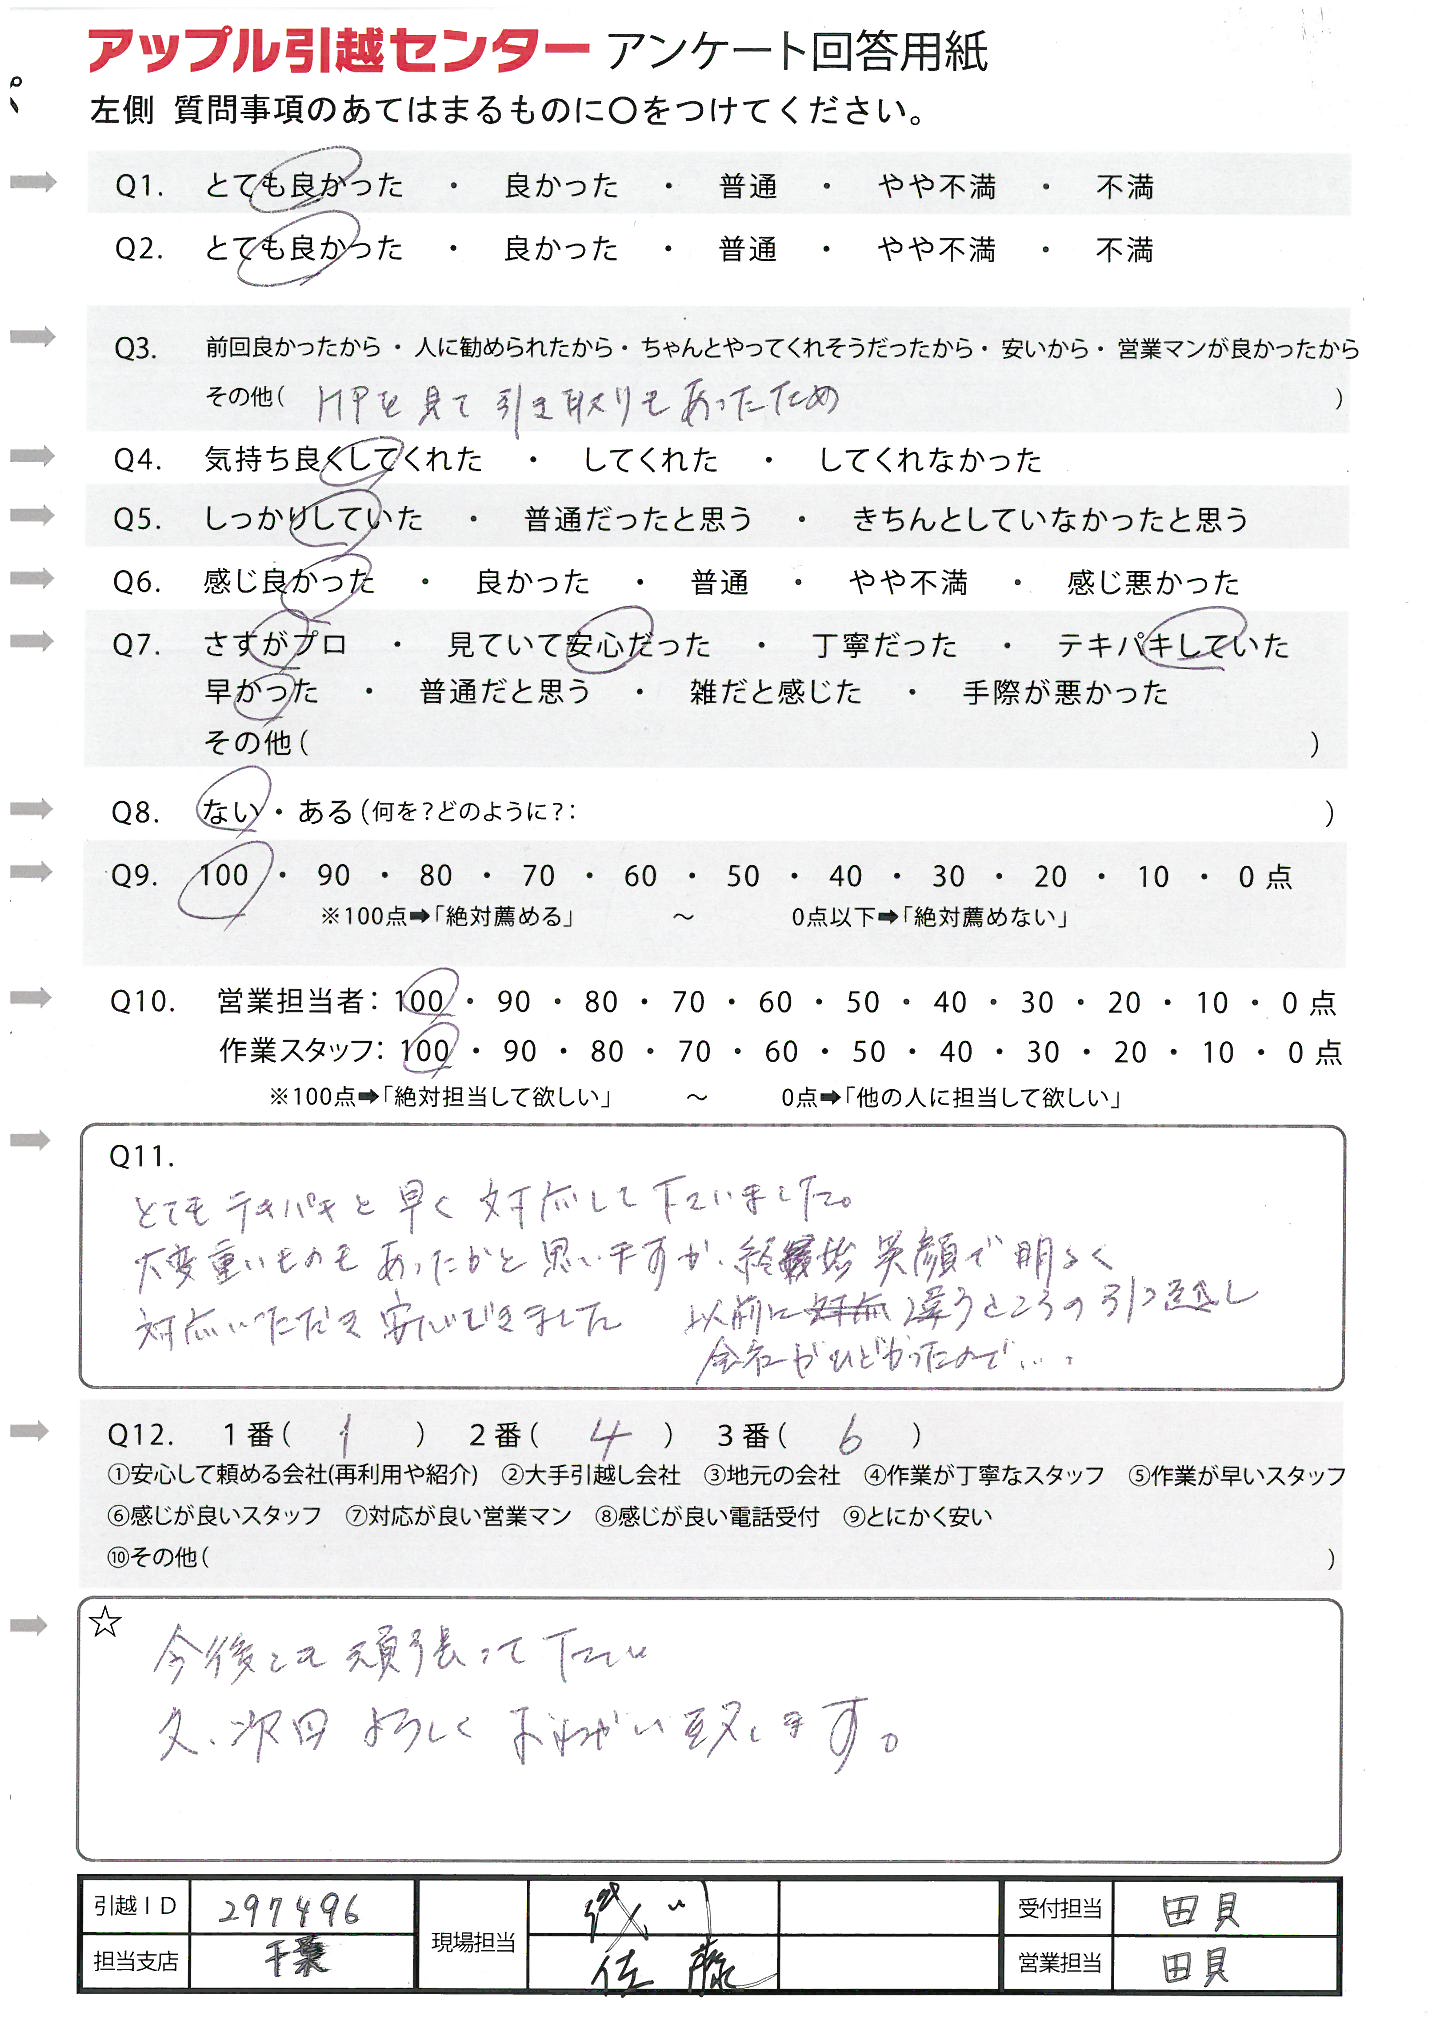 アップル引越センター アンケート回答用紙
左側 質問事項のあてはまるものに〇をつけてください。
Q1. とても良かった ・ 良かった ・ 普通 ・ やや不満 ・ 不満
Q2. とても良かった ・ 良かった ・ 普通 ・ やや不満 ・ 不満
Q3. 前回良かったから ・ 人に勧められたから ・ ちゃんとやってくれそうだったから ・ 安いから ・ 営業マンが良かったから
その他( HPを見て引き取りもあったため )
Q4. 気持ち良くしてくれた ・ してくれた ・ してくれなかった
Q5. しっかりしていた ・ 普通だったと思う ・ きちんとしていなかったと思う
Q6. 感じ良かった ・ 良かった ・ 普通 ・ やや不満 ・ 感じ悪かった
Q7. さすがプロ ・ 見ていて安心だった ・ 丁寧だった ・ テキパキしていた
早かった ・ 普通だと思う ・ 雑だと感じた ・ 手際が悪かった
その他( )
Q8. ない ・ ある (何を?どのように?: )
Q9. 100 ・ 90 ・ 80 ・ 70 ・ 60 ・ 50 ・ 40 ・ 30 ・ 20 ・ 10 ・ 0 点
※100点➡「絶対薦める」 〜 0点以下➡「絶対薦めない」
Q10. 営業担当者: 100 ・ 90 ・ 80 ・ 70 ・ 60 ・ 50 ・ 40 ・ 30 ・ 20 ・ 10 ・ 0 点
作業スタッフ: 100 ・ 90 ・ 80 ・ 70 ・ 60 ・ 50 ・ 40 ・ 30 ・ 20 ・ 10 ・ 0 点
※100点➡「絶対担当して欲しい」 〜 0点➡「他の人に担当して欲しい」
Q11.
とてもテキパキと早く対応して下さいました。
大変重いものもあったかと思いますが、終始笑顔で明るく
対応いただき安心できました 以前に違うところの引っ越し
会社がひどかったので...
Q12. 1番( 1 ) 2番( 4 ) 3番( 6 )
①安心して頼める会社(再利用や紹介) ②大手引越し会社 ③地元の会社 ④作業が丁寧なスタッフ ⑤作業が早いスタッフ
⑥感じが良いスタッフ ⑦対応が良い営業マン ⑧感じが良い電話受付 ⑨とにかく安い
⑩その他( )
☆
今後とも頑張って下さい
又、次回よろしくおねがい致します。
引越ID 297496 現場担当 受付担当 田貝
担当支店 千葉 佐藤 営業担当 田貝